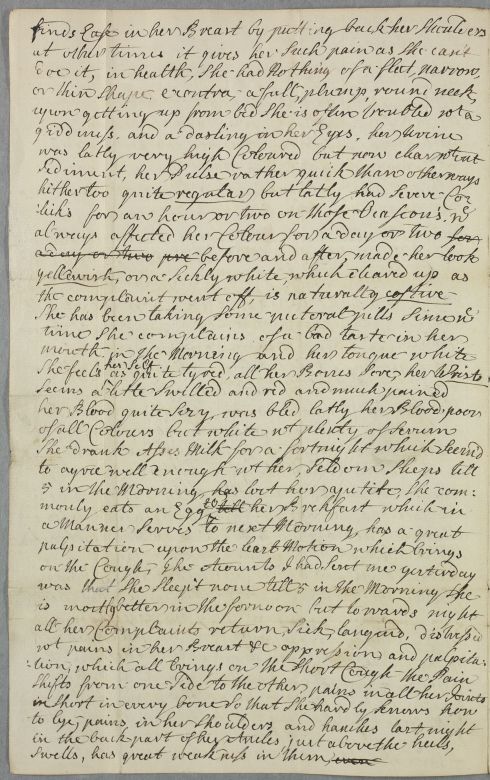 finds Ease in her Breast by putting back her Shoulders
at other times it gives her Such pain as She can't
doe it, in health, She had Nothing of a flat, narrow,
or thin Shape, e contra, a full, plump round neck,
upon getting up from bed She is often troubled wt a
giddiness, and a dasling in her Eyes, her urine
was latly very high Coloured but now clear wtout
Sediment, her Pulse rather quick than otherways
hithertoo quite regular, but latly had Severe Co-
:licks for an hour or two on those Occasions, wch
always affected her Colour for a day or two for
a day or two pre before and after, made her look
yellowish, or a Sickly white, which cleared up as
the complaint went off, is naturally costive
She has been taking Some puteral pills Since wch
time She complains of a bad taste in her
mouth in the Morning and her tongue white
She feels her Self as quite tyred, all her Bones Sore, her Wrists
Seems a little Swilled and red and much pained
her Blood quite Sizy, was bled latly her Blood poor
of all Colours but white wt plenty of Serum
She drank Asses Milk for a fortnight which Seem'd
to agree well enough wt her, Seldom Sleeps till
5 in the Morning, has lost her aptite, She com-
monly eats an Egg to her Brekfast which in
a Manner Serves to next Morning, has a great
palpitation upon the least Motion which brings
on the Cough, The Accounts I had Sent me yesterday
was that She Sleep't none till 5 in the Morning She
is mostly better in the fornoon but towards night
all her Complaints return, Sick, languid, distress'd
wt pains in her Breast &c oppression and palpita-
:tion, which all brings on the Short Cough the Pain
Shifts from one Side to the other, pains in all her Joints
in Short in every bone So that She hardly knows how
to lye, pains in her Shoulders and hanches last night
in the back part of her Ancles just above the heels,
Swells, has great weakness in them, even